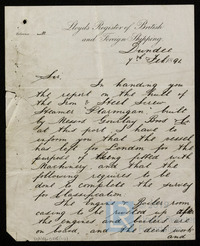 Lloyds Register of British
and Foreign Shipping.
Dundee
7th Feb 91
Sir,
In handing you
the report on the Hull of
the Iron & Steel Screw
Steamer Glarmogan built
by Messrs Gourlay Bros &
at this port I have to
inform you that the vessel
has left for London for the
purpose of being fitted with
Machinery and that the
following requires to be
done to complete the survey
for Classification.
The Engine & Boiler room
casing to be riveted up after
the engines and boilers are
on board, and the deck work
and